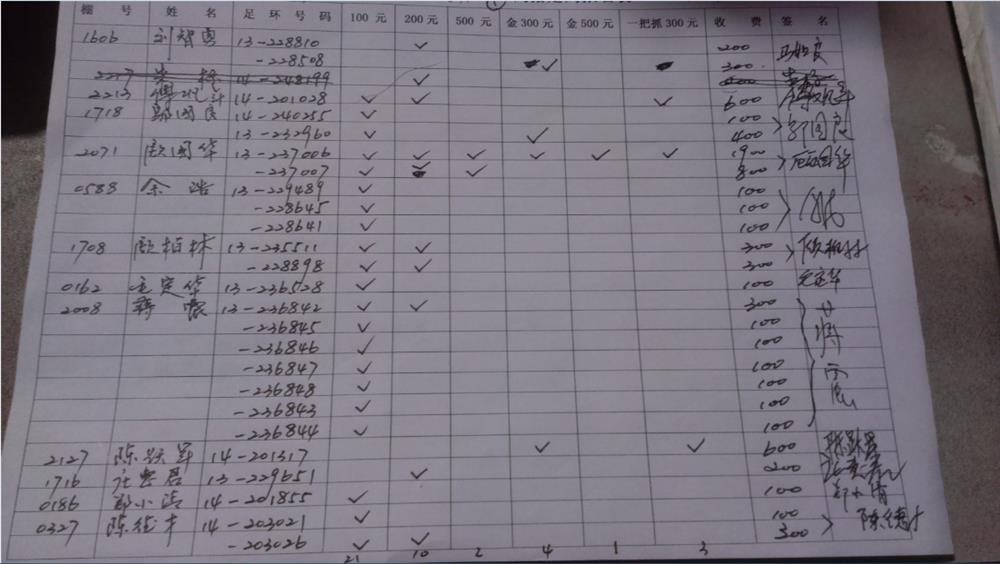 棚 号 姓 名 足 环 号 码 100 元 200元 500 元 金 300 元 金 500 元 一把抓 300 元 收 费 签 名
1606 刘智勇 13-228810 ✓ 200
-228508 ✓ 300
2217 14-248199 ✓
2213 14-201028 ✓ ✓ ✓ 600
1718 郭国良 14-240255 ✓ 100 郭国良
13-232960 ✓ ✓ 400
2071 顾国华 13-237006 ✓ ✓ ✓ ✓ ✓ ✓ 1900 顾国华
-237007 ✓ ✓ 800
0588 余浩 13-229489 ✓ 100
-228645 ✓ 100
-228641 ✓ 100
1708 顾柏林 13-235511 ✓ ✓ 300 顾柏林
-228898 ✓ ✓ 300
0162 13-236528 ✓ 100
2008 蒋震 13-236842 ✓ ✓ 300 蒋震
-236845 ✓ 100
-236846 ✓ 100
-236847 ✓ 100
-236848 ✓ 100
-236843 ✓ 100
-236844 ✓ 100
2127 陈跃军 14-201317 ✓ ✓ 600
1716 13-229651 ✓ 200
0186 郑小清 14-201855 ✓ 100 郑小清
0327 陈德才 14-203021 ✓ 100 陈德才
-203026 ✓ ✓ 300
21 10 2 4 1 3